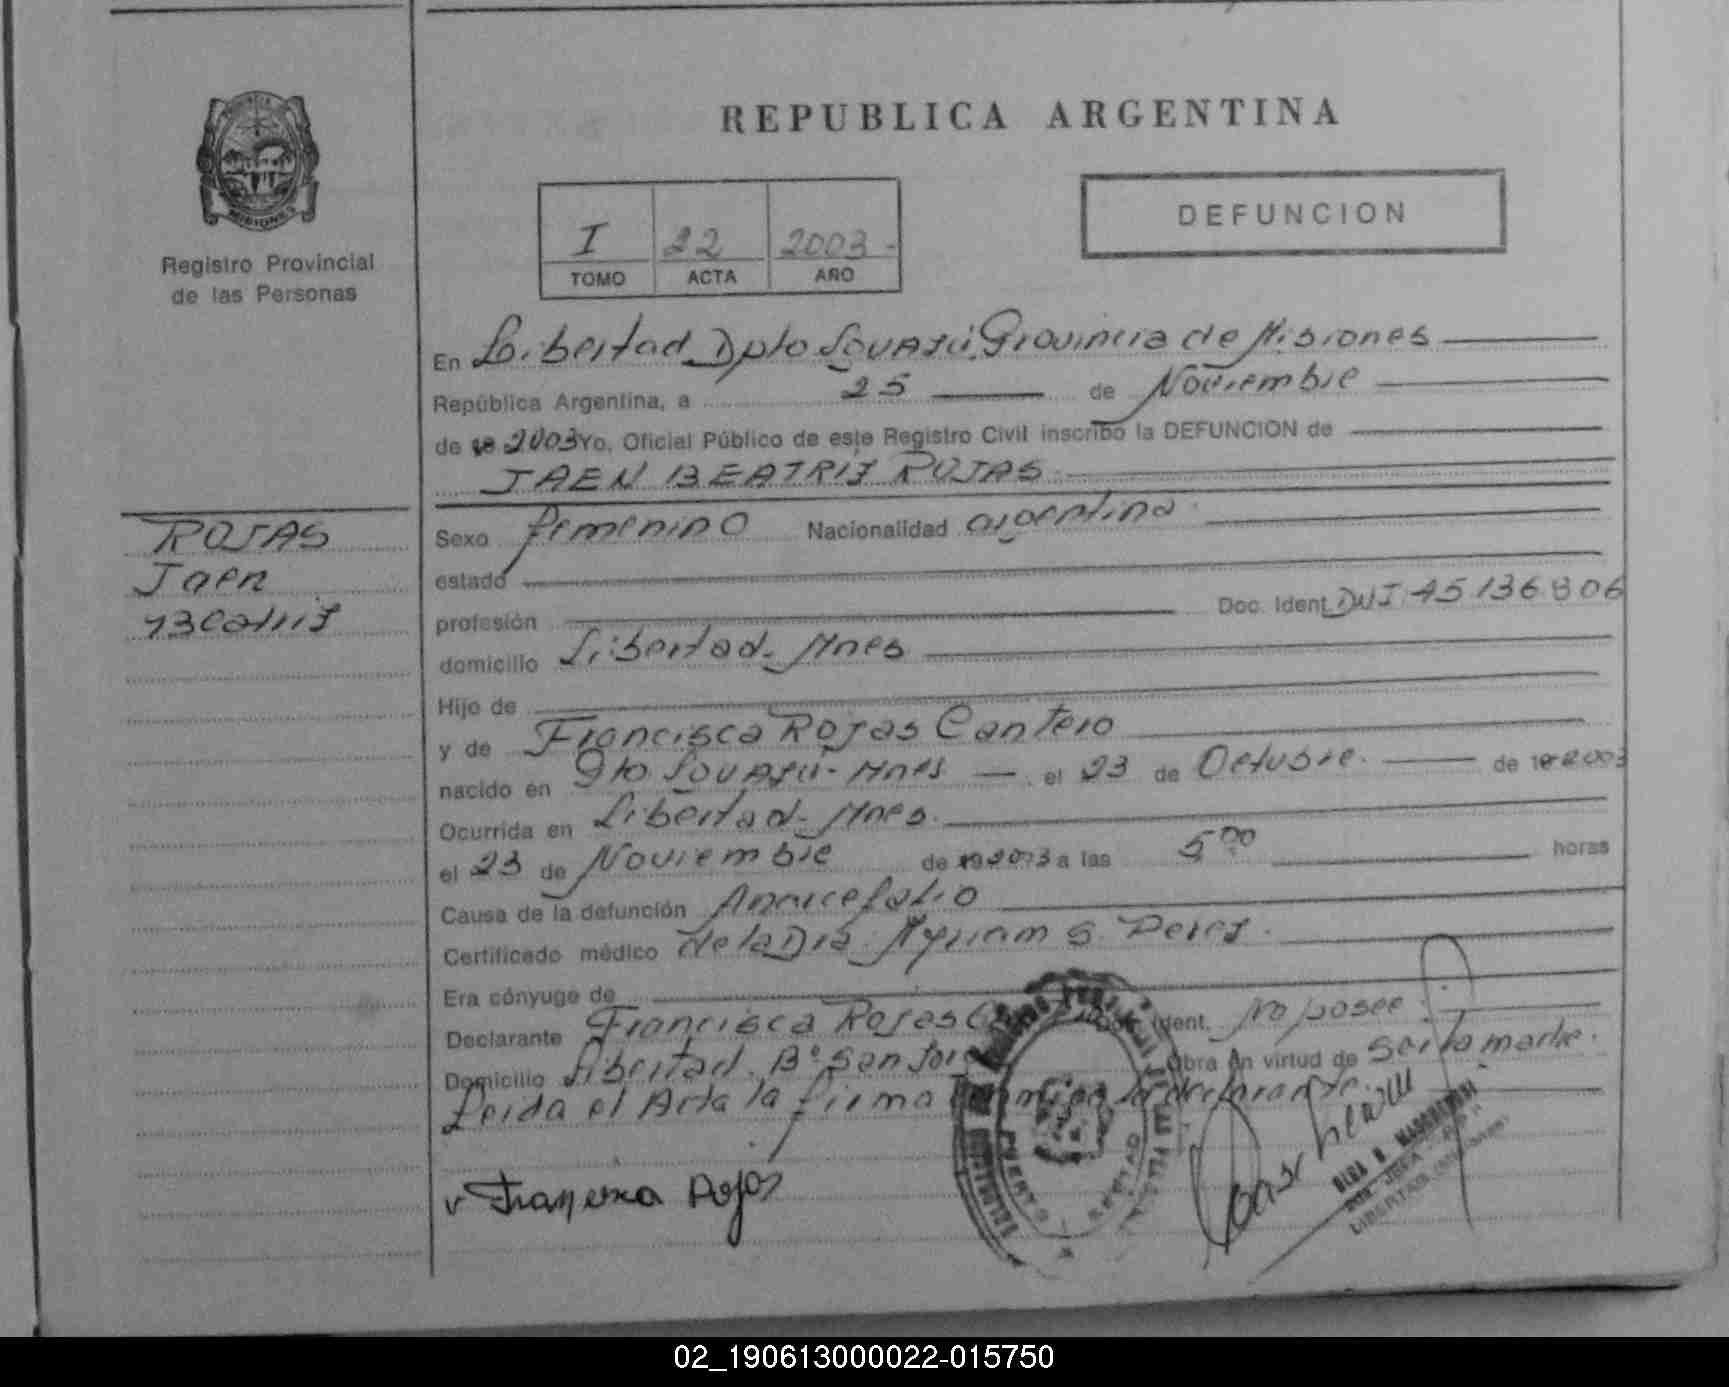 REPUBLICA ARGENTINA
MISIONES
Registro Provincial
de las Personas
I 22 2003-
TOMO ACTA AÑO
DEFUNCION
En Libertad Dpto Iguazú Provincia de Misiones
República Argentina, a 25 de Noviembre
de 2003 Yo, Oficial Público de este Registro Civil inscribo la DEFUNCION de
JAEN BEATRIZ ROJAS
ROJAS
Jaen
Beatriz
Sexo femenino Nacionalidad argentina
estado
profesión Doc. Ident. DNI 45136806
domicilio Libertad - Mnes
Hijo de
y de Francisca Rojas Cantero
nacido en Pto Iguazú - Mnes — el 23 de Octubre. de 19 2003
Ocurrida en Libertad - Mnes.
el 23 de Noviembre de 19 2003 a las 5 00 horas
Causa de la defunción
Certificado médico de la Dra. Myriam S. Perez.
Era cónyuge de
Declarante Francisca Rojas Ident. No posee
Domicilio Libertad. Bº San Obra en virtud de ser la madre.
Leida el Acta la firma la declarante.
Rojas
LIBERTAD
02_190613000022-015750